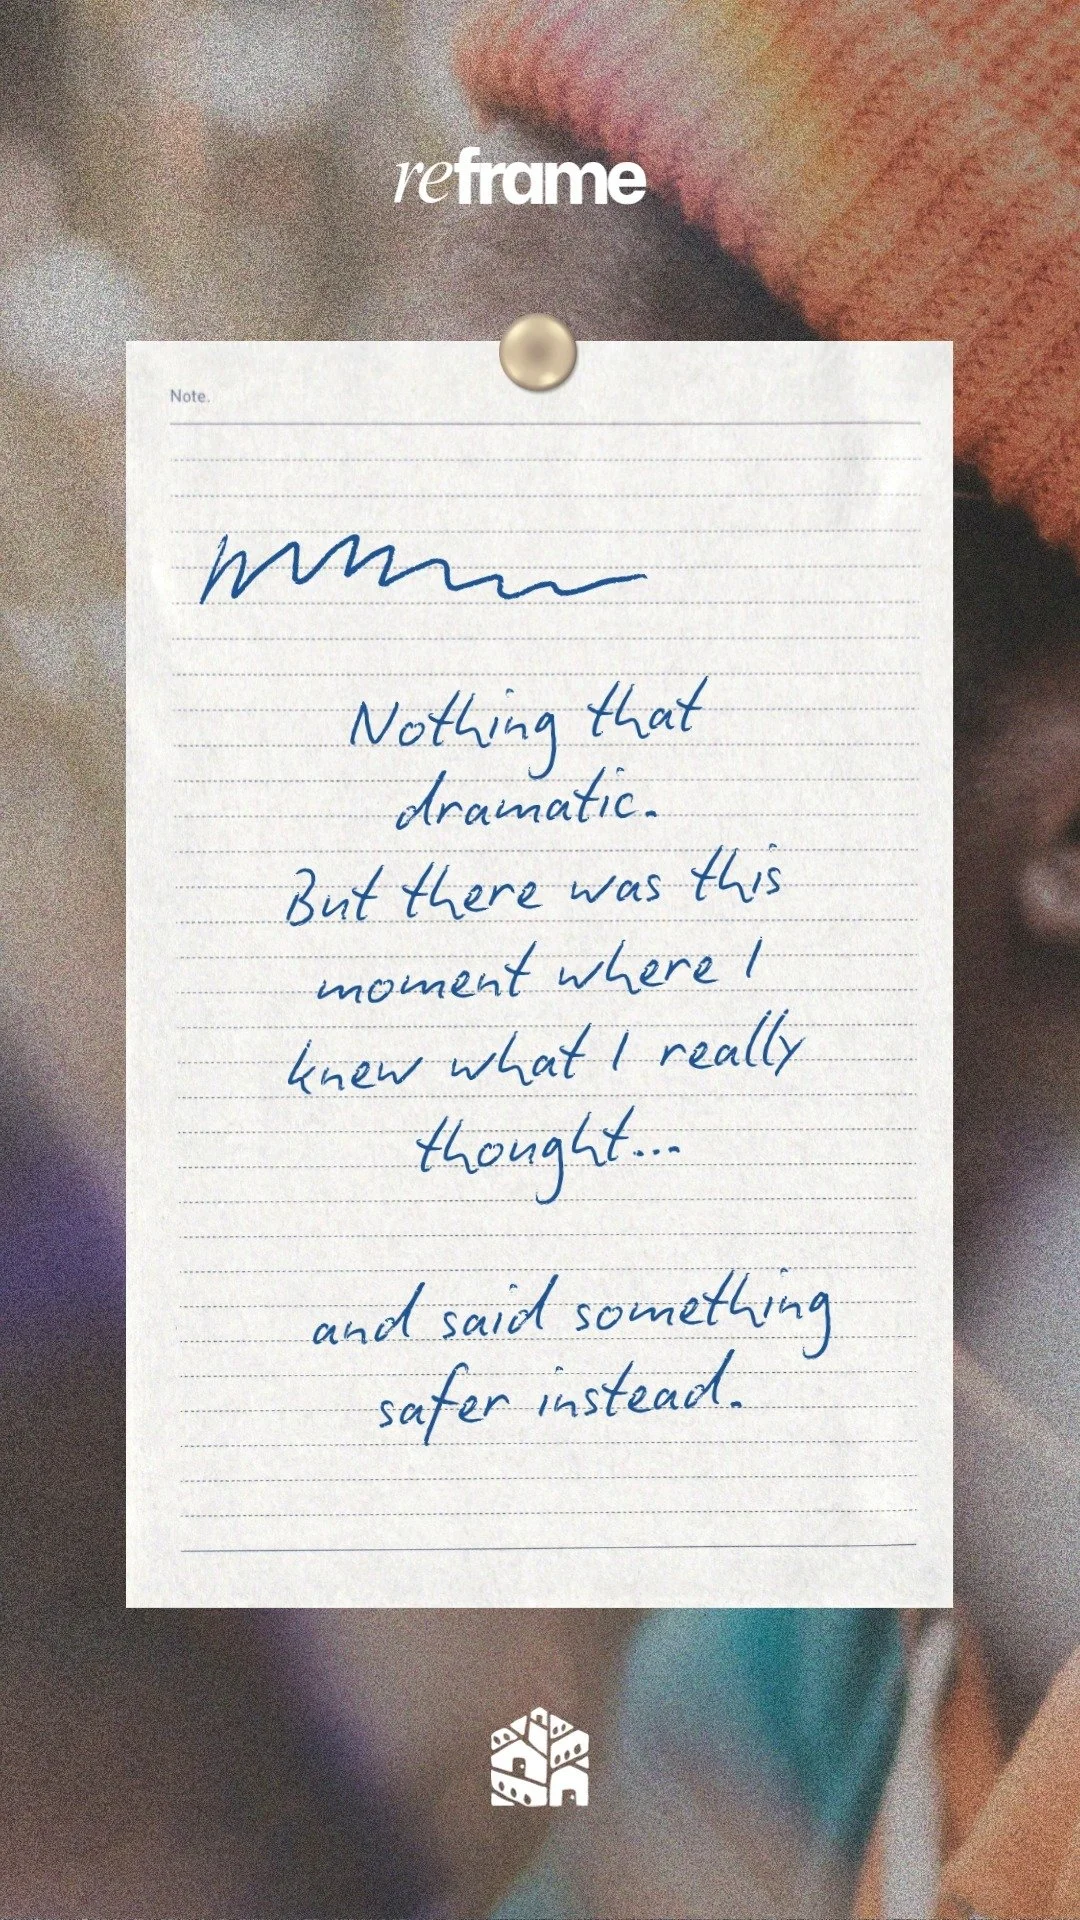 reframe
Note.
Nothing that
dramatic.
But there was this
moment where I
knew what I really
thought...
and said something
safer instead.